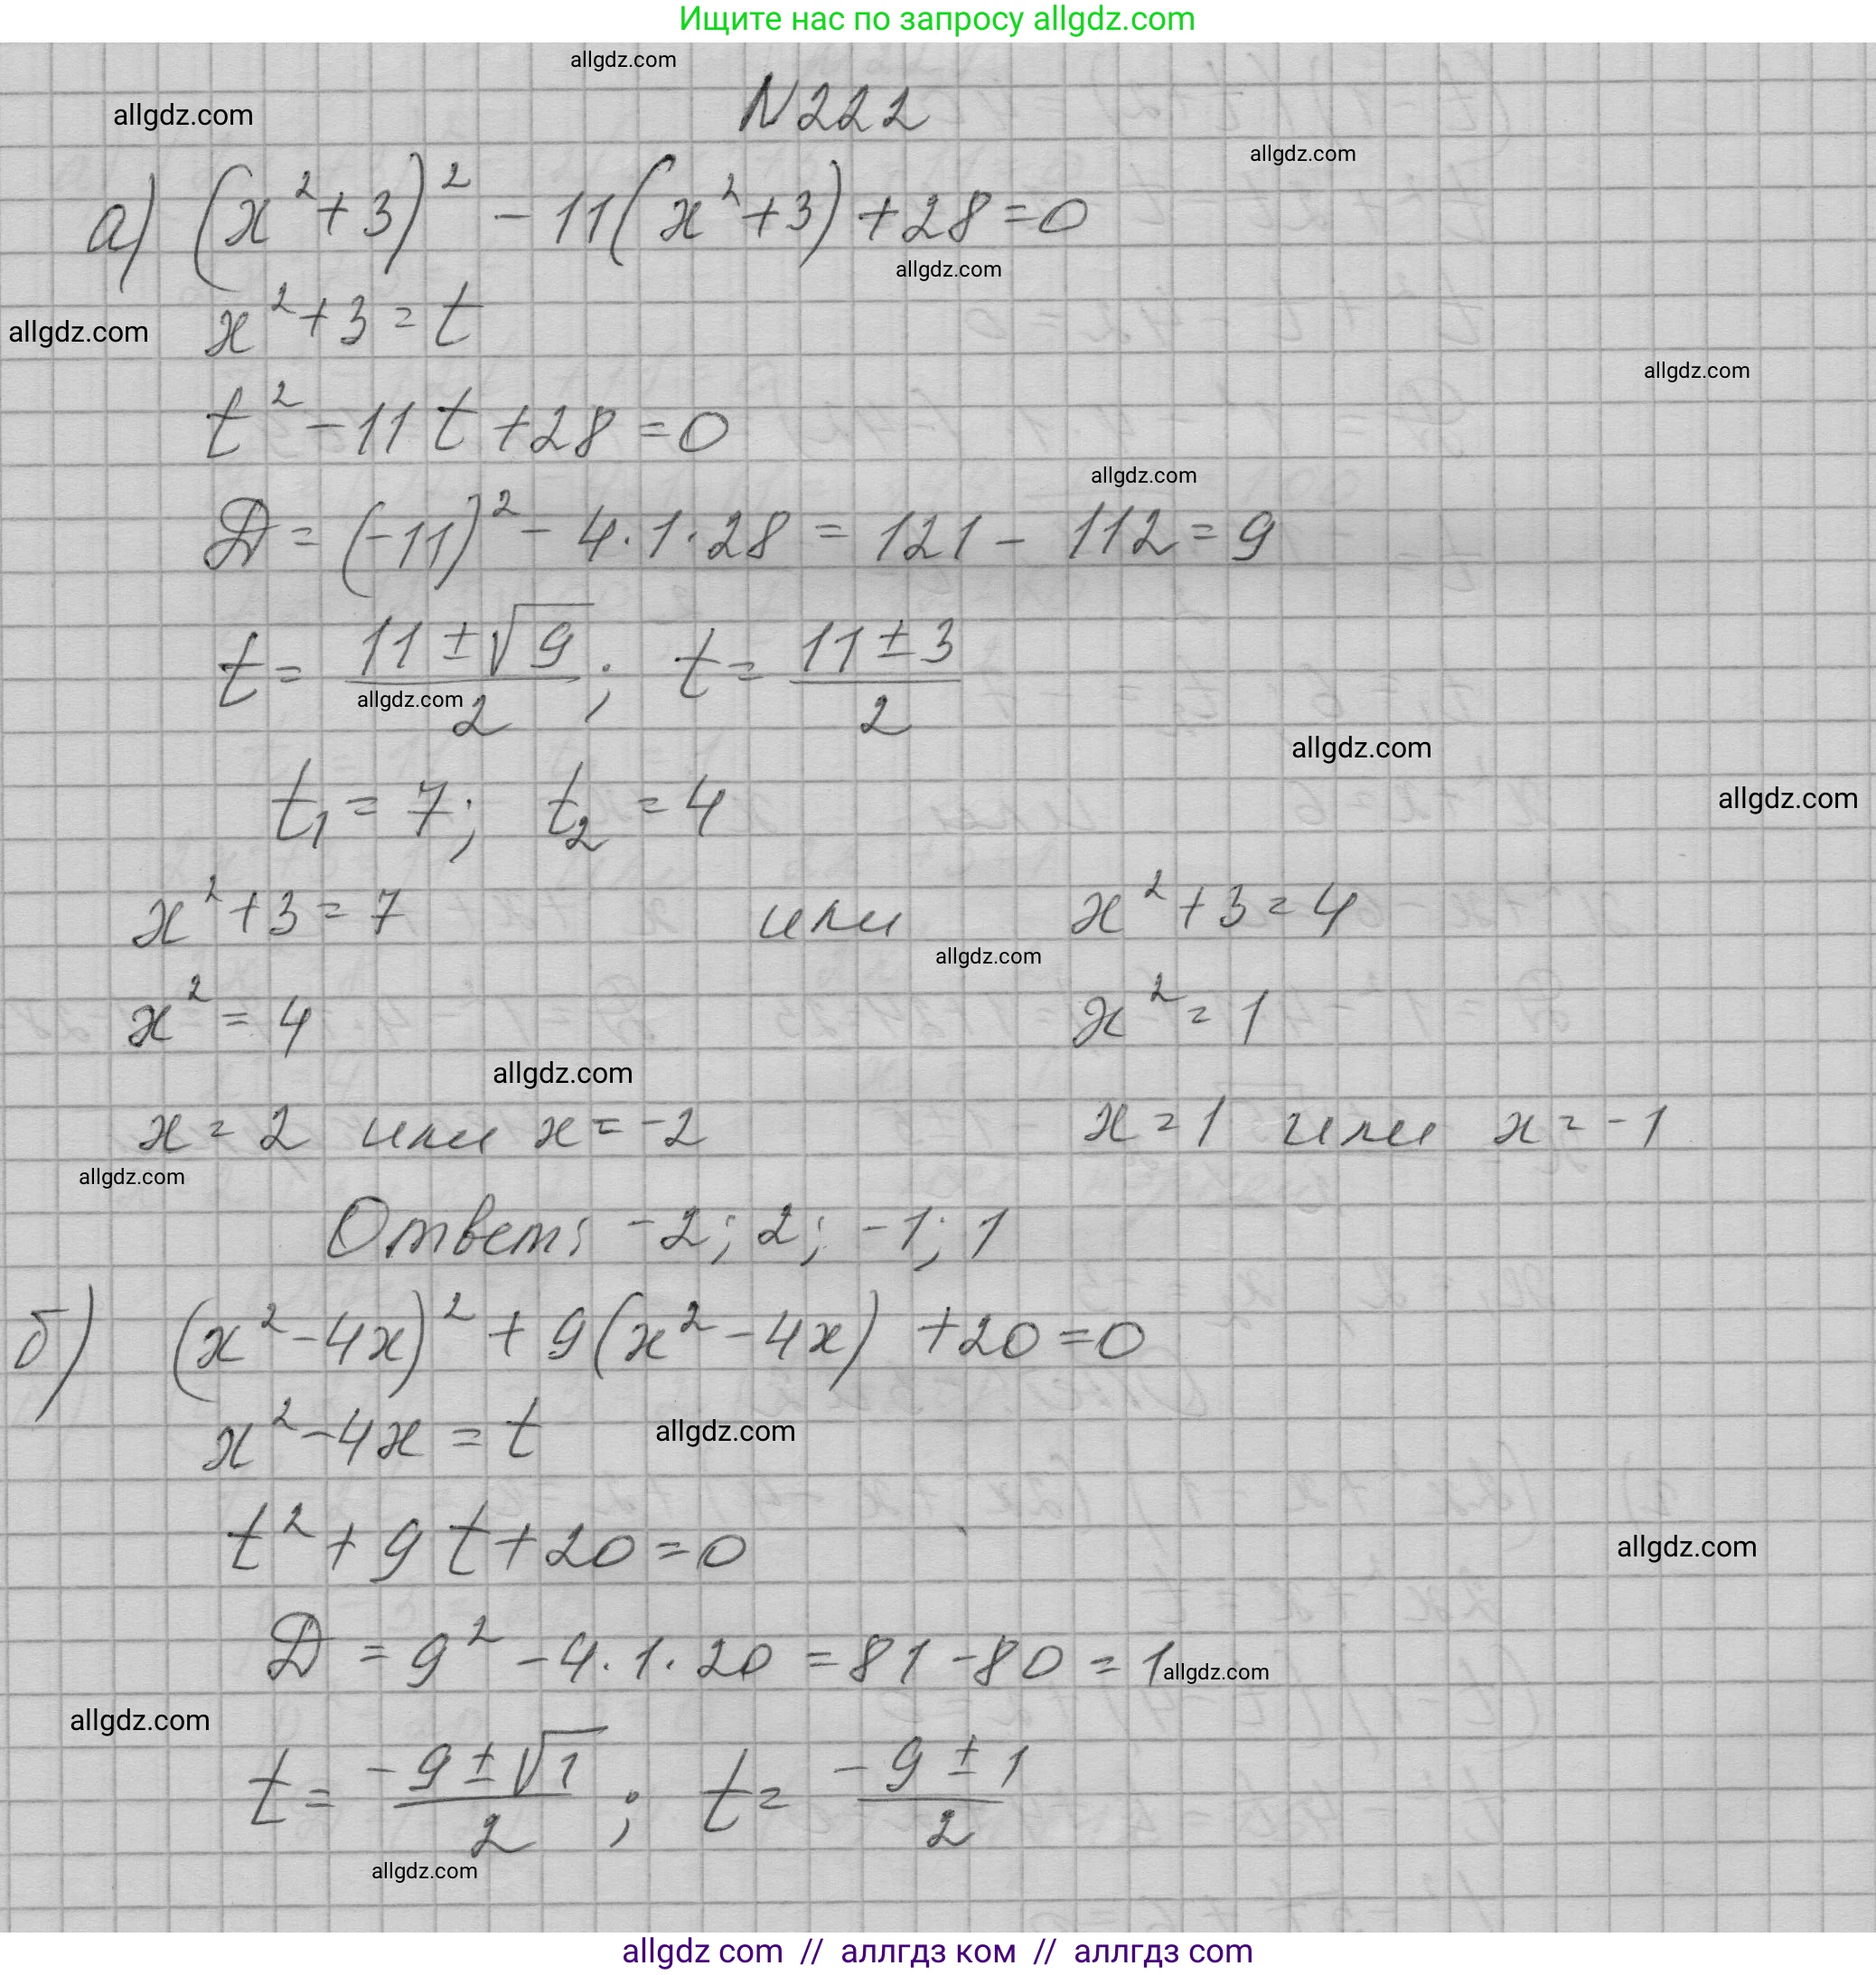 Ищите нас по запросу allgdz.com
allgdz.com
N222
allgdz.com
allgdz.com
а) (x²+3)² - 11(x²+3)+28=0
allgdz.com
x²+3=t
allgdz.com
allgdz.com
t²-11t+28=0
allgdz.com
D=(-11)²-4·1·28=121-112=9
t=(11±√9)/2; t=(11±3)/2
allgdz.com
allgdz.com
t₁=7; t₂=4
allgdz.com
x²+3=7 или x²+3=4
allgdz.com
x²=4 x²=1
allgdz.com
x=2 или x=-2 x=1 или x=-1
allgdz.com
Ответ: -2; 2; -1; 1
б) (x²-4x)²+9(x²-4x)+20=0
x²-4x=t
allgdz.com
t²+9t+20=0
allgdz.com
D=9²-4·1·20=81-80=1
allgdz.com
allgdz.com
t=(-9±√1)/2; t=(-9±1)/2
allgdz.com
allgdz com // аллгдз ком // аллгдз com